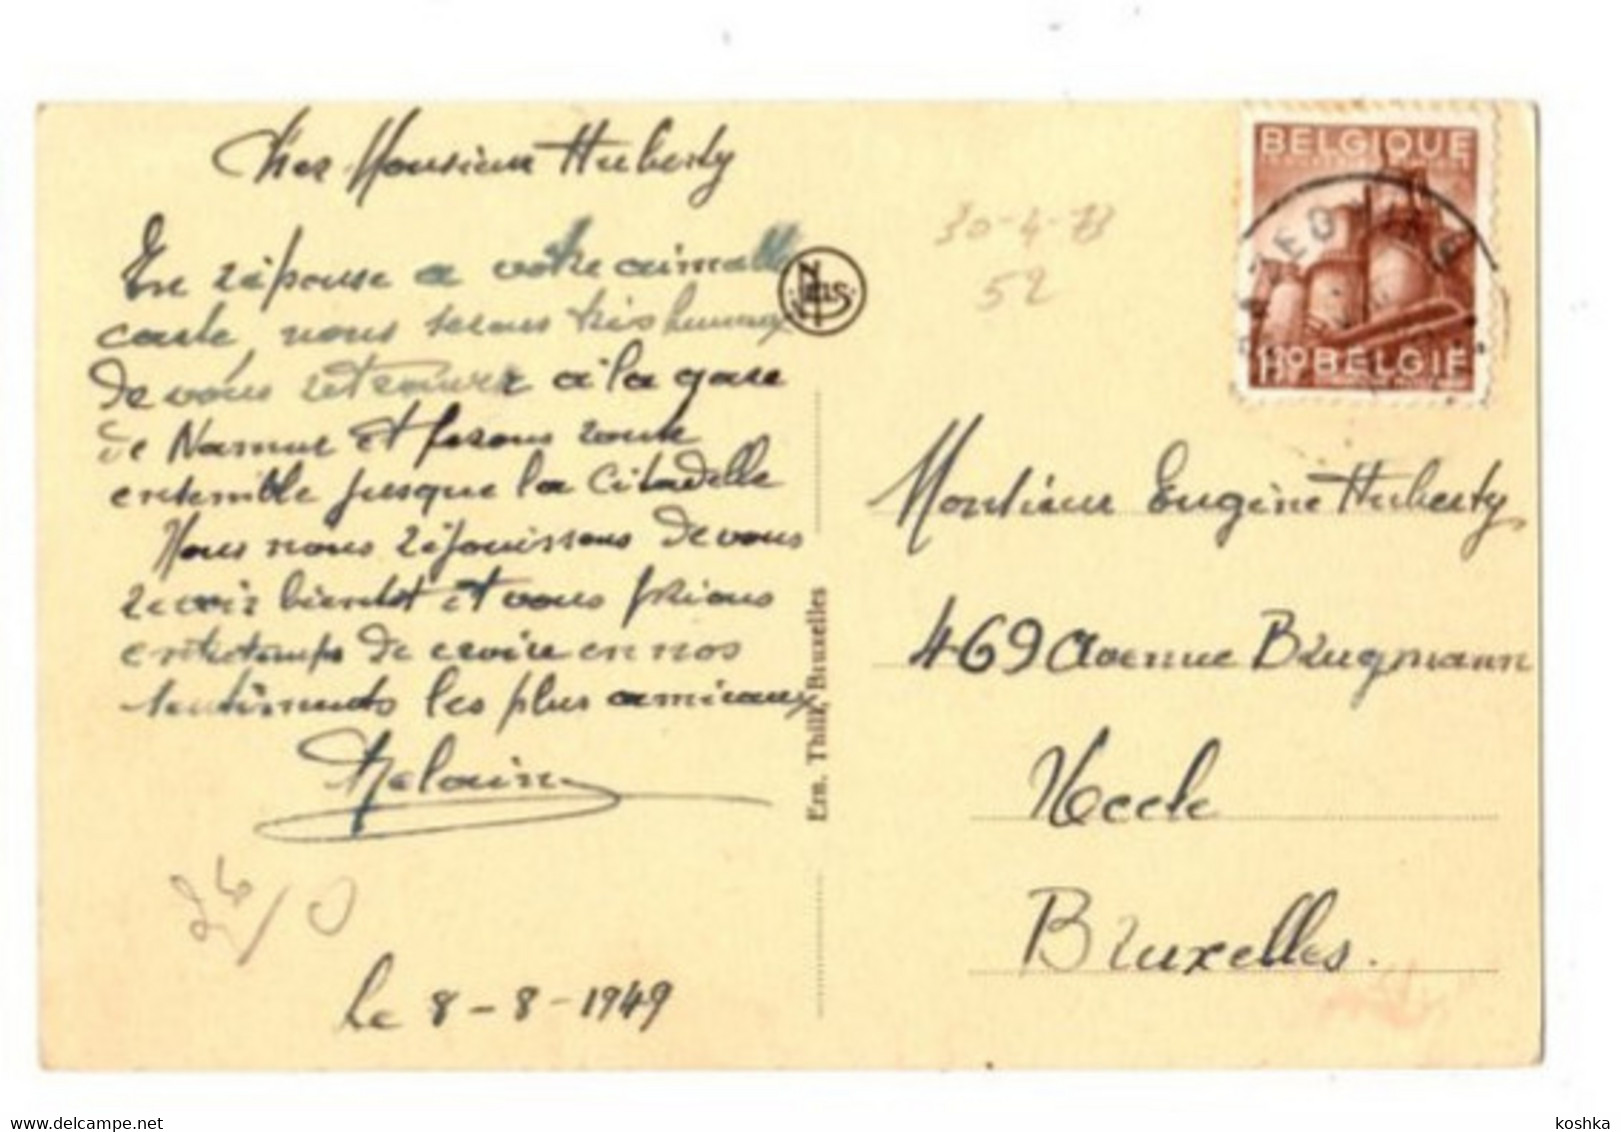 Cher Monsieur Huberty
En réponse a votre aimable
carte, nous serons très heureux
de vous retrouver a la gare
de Namur et ferons route
ensemble jusque la Citadelle
Nous nous réjouissons de vous
revoir bientôt et vous prions
entretemps de croire en nos
sentiments les plus amicaux
Le 8-8-1949
Nels
Ern. Thill, Bruxelles
30-4-73
52
BELGIQUE
1.20 BELGIE
Monsieur Eugène Huberty
469 Avenue Brugmann
Uccle
Bruxelles.
www.delcampe.net
koshka